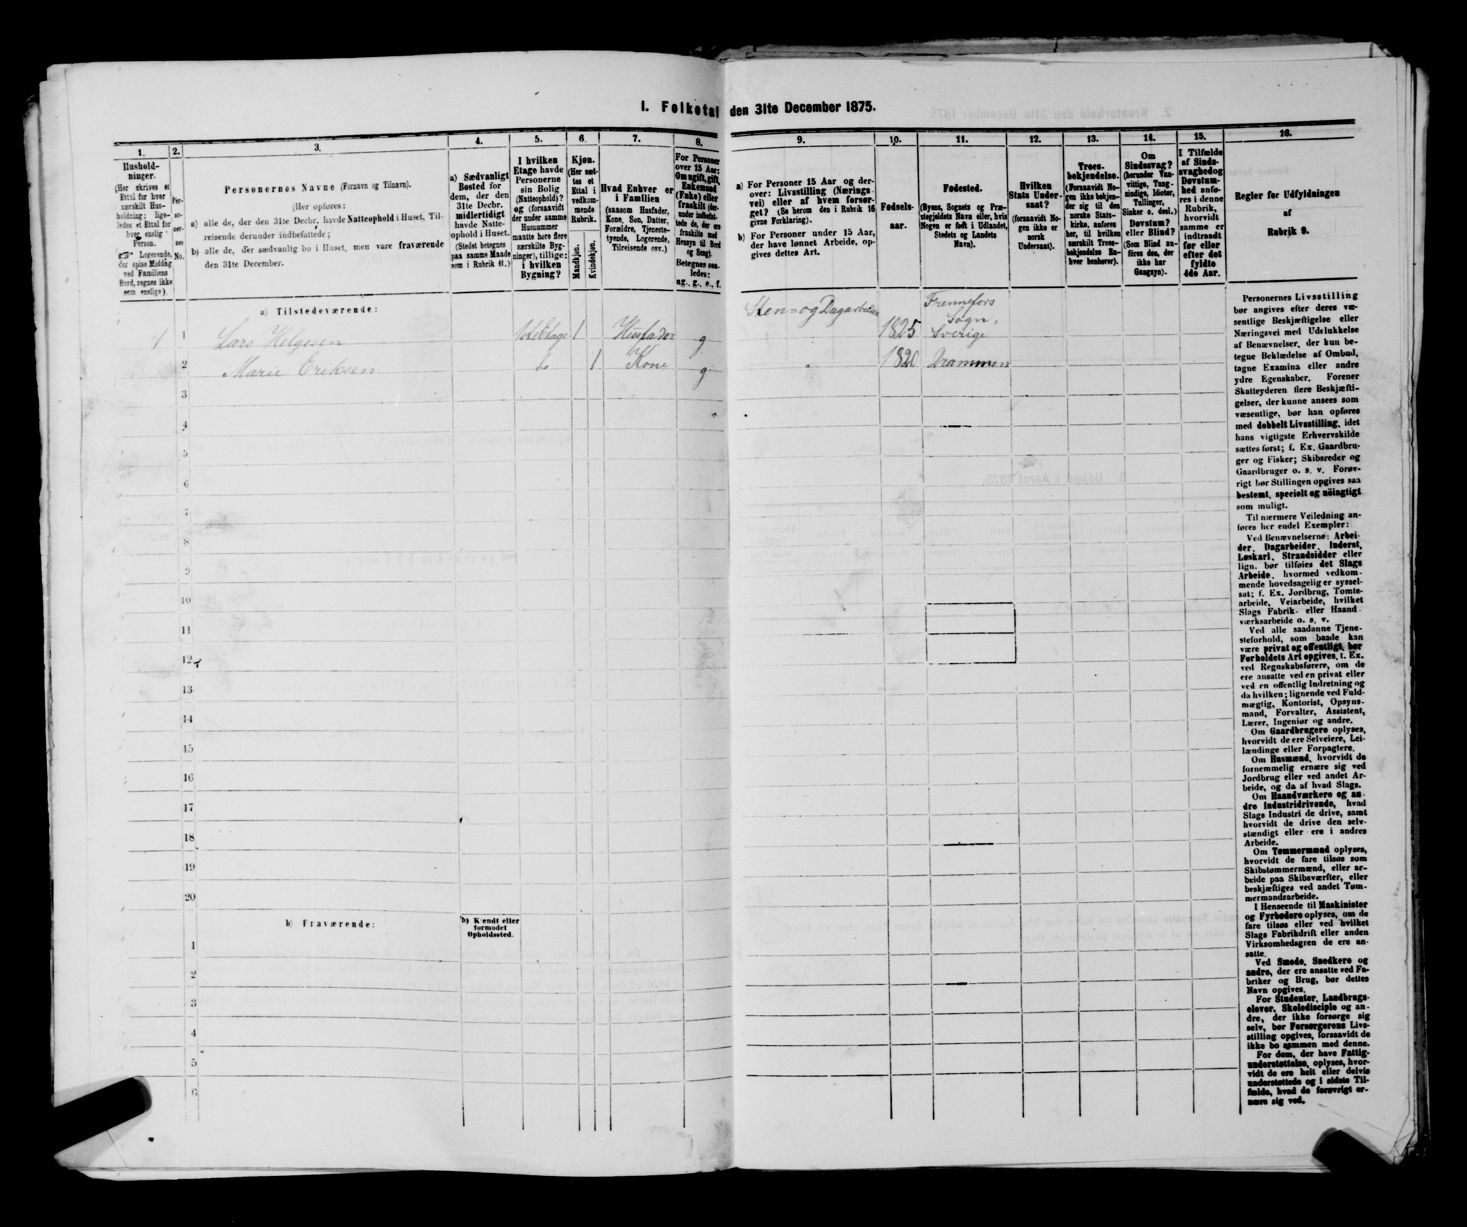 I. Folketal den 31te December 1875.
1.
2.
3.
4.
5.
6.
7.
8.
9.
10.
11.
12.
13.
14.
15.
16.
Hushold-
ninger.
(Her skrives et
Ettal for hver
særskilt Hus-
holdning; lige-
ledes et Ettal for
hver enslig
Person.
☞ Logerende,
der spise Middag
ved Familiens
Bord, regnes ikke
som enslige).
Per-
so-
ner-
nes
No.
Personernes Navne (Fornavn og Tilnavn).
(Her opføres:
a) alle de, der den 31te Decbr. havde Natteophold i Huset, Til-
reisende derunder indbefattede;
b) alle de, der sædvanlig bo i Huset, men vare fraværende
den 31te December.
a) Sædvanligt
Bosted for
dem, der den
31te Decbr.
midlertidigt
havde Natte-
ophold i Huset.
(Stedet betegnes
paa samme Maade
som i Rubrik 11.)
I hvilken
Etage havde
Personerne
sin Bolig
(Natteophold)?
og (forsaavidt
der under samme
Husnummer
maatte høre flere
særskilte Byg-
ninger), tillige:
i hvilken
Bygning?
Kjøn.
(Her sæt-
tes et
Ettal i
vedkom-
mende
Rubrik.
Mandkjøn.
Kvindekjøn.
Hvad Enhver er
i Familien
(saasom Husfader,
Kone, Søn, Datter,
Forældre, Tjeneste-
tyende, Logerende,
Tilreisende osv.)
For Personer
over 15 Aar:
Om ugift, gift,
Enkemand
(Enke) eller
fraskilt (der-
under indbefat-
tede de, der ere
fraskilte med
Hensyn til Bord
og Seng).
Betegnes saa-
ledes:
ug., g., e., f.
a) For Personer 15 Aar og der-
over: Livsstilling (Nærings-
vei) eller af hvem forsør-
get? (Se herom den i Rubrik 16
givne Forklaring).
b) For Personer under 15 Aar,
der have lønnet Arbeide, op-
gives dettes Art.
Fødsels-
aar.
Fødested.
(Byens, Sognets og Præ-
stegjeldets Navn eller, hvis
Nogen er født i Udlandet,
Stedets og Landets
Navn).
Hvilken
Stats Under-
saat?
(forsaavidt No-
gen ikke er
norsk
Undersaat).
Troes-
bekjendelse.
(Forsaavidt No-
gen ikke bekjen-
der sig til den
norske Stats-
kirke, anføres
her, til hvilken
særskilt Troes-
bekjendelse En-
hver henhører).
Om
Sindssvag?
(herunder Van-
vittige, Tung-
sindige, Idioter,
Tullinger,
Sinker o. desl.)
Døvstum?
eller Blind?
(Som Blind an-
føres den, der
ikke har
Gangsyn).
I Tilfælde
af Sinds-
svaghed og
Døvstum-
hed anfø-
res i denne
Rubrik,
hvorvidt
samme er
indtraadt
før eller
efter det
fyldte
4de Aar.
Regler for Udfyldningen
af
Rubrik 9.
a) Tilstedeværende:
1 1 Lars Helgesen 1ste Etage 1 Husfader g Sten= og Dagarbeider 1825 Frennefors
Sogn,
Sverige
2 Marie Eriksen do 1 Kone g " 1820 Drammen
3
4
5
6
7
8
9
10
11
12
13
14
15
16
17
18
19
20
b) Fraværende:
b) Kjendt eller
formodet
Opholdssted.
1
2
3
4
5
6
Personernes Livsstilling
bør angives efter deres væ-
sentlige Beskjæftigelse eller
Næringsvei med Udelukkelse
af Benævnelser, der kun be-
tegne Beklædelse af Ombud,
tagne Examina eller andre
ydre Egenskaber. Forener
Skatteyderen flere Beskjæfti-
gelser, der kunne ansees som
væsentlige, bør han opføres
med dobbelt Livsstilling, idet
hans vigtigste Erhvervskilde
sættes først; f. Ex. Gaardbru-
ger og Fisker; Skibsreder og
Gaardbruger o. s. v. Forøv-
rigt bør Stillingen opgives saa
bestemt, specielt og nøiagtigt
som muligt.
Til nærmere Veiledning an-
føres her endel Exempler:
Ved Benævnelserne: Arbei-
der, Dagarbeider, Inderst,
Løskarl, Strandsidder eller
lign. bør tilføies det Slags
Arbeide, hvormed vedkom-
mende hovedsagelig er syssel-
sat; f. Ex. Jordbrug, Tomte-
arbeide, Veiarbeide, hvilket
Slags Fabrik- eller Haand-
værksarbeide o. s. v.
Ved alle saadanne Tjene-
steforhold, som baade kan
være privat og offentligt, bør
Forholdets Art opgives, f. Ex.
ved Regnskabsførere, om de
ere ansatte ved en privat eller
ved en offentlig Indretning og
da hvilken; lignende ved Fuld-
mægtig, Kontorist, Opsyns-
mand, Forvalter, Assistent,
Lærer, Ingeniør og andre.
Om Gaardbrugere oplyses,
hvorvidt de ere Selveiere, Lei-
lændinge eller Forpagtere.
Om Husmænd, hvorvidt de
fornemmelig ernære sig ved
Jordbrug eller ved andet Ar-
beide, og da af hvad Slags.
Om Haandværkere og an-
dre Industridrivende, hvad
Slags Industri de drive, samt
hvorvidt de drive den selv-
stændigt eller ere i andres
Arbeide.
Om Tømmermænd oplyses,
hvorvidt de fare tilsøs som
Skibstømmermænd, eller ar-
beide paa Skibsværfter, eller
beskjæftiges ved andet Tøm-
mermandsarbeide.
I Henseende til Maskinister
og Fyrbødere oplyses, om de
fare tilsøs eller ved hvilket
Slags Fabrikdrift eller anden
Virksomhedsgren de ere an-
satte.
Ved Smede, Snedkere og
andre, der ere ansatte ved Fa-
briker og Brug, bør dettes
Navn opgives.
For Studenter, Landbrugs-
elever, Skoledisciple og an-
dre, der ikke forsørge sig
selv, bør Forsørgerens Livs-
stilling opgives, forsaavidt de
ikke bo sammen med denne.
For dem, der have Fattig-
understøttelse, oplyses, hvor-
vidt de ere helt eller delvis
understøttede og i sidste Til-
fælde, hvad de forøvrigt er-
nære sig ved.